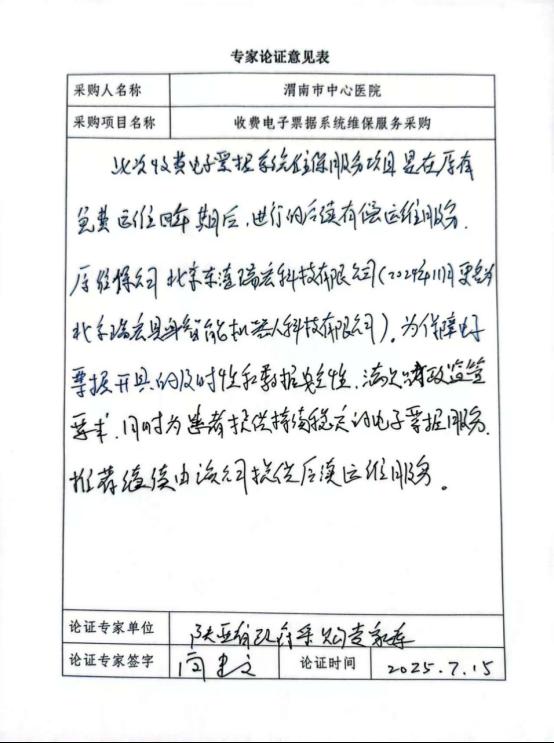 专家论证意见表
采购人名称 渭南市中心医院
采购项目名称 收费电子票据系统维保服务采购
此次收费电子票据系统维保服务项目是在原有
免费运维四年期后，进行的后续有偿运维服务.
原维保公司北京东道瑞宏科技有限公司(2024年11月更名为
北京瑞宏具身智能机器人科技有限公司)。为保障电子
票据开具的及时性和数据安全性，满足财政监管
要求，同时为患者提供持续稳定的电子票据服务,
推荐继续由该公司提供后续运维服务。
论证专家单位 陕西省政府采购专家库
论证专家签字 论证时间 2025.7.15